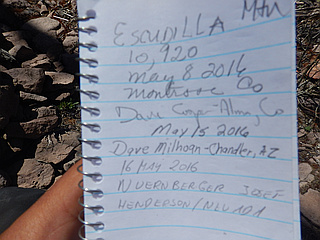 ESCUDILLA Mtn
10,920
May 8 2016
Montrose Co
Dave
May 15 2016
Dave Milhoan-Chandler, AZ
16 MAY 2016
NUERNBERGER JOSEF
HENDERSON/NEVADA